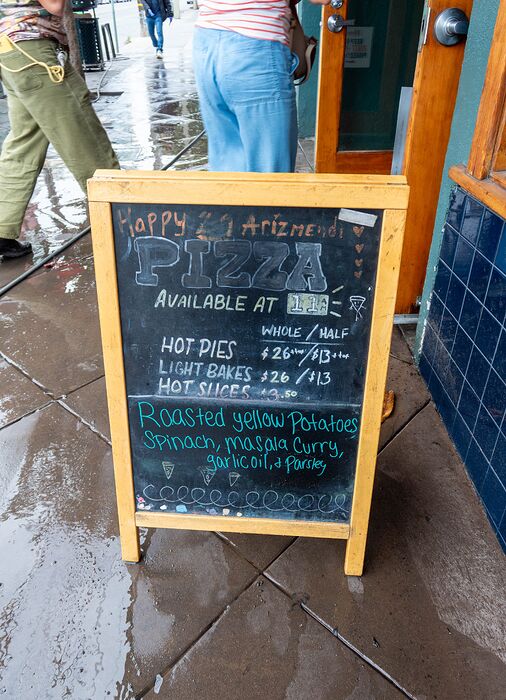 Happy Arizmendi
PIZZA
AVAILABLE AT 11
WHOLE / HALF
HOT PIES $26+tax / $13+tax
LIGHT BAKES $26 / $13
HOT SLICES $3.50
Roasted yellow Potatoes,
spinach, masala Curry,
garlic oil, & Parsley